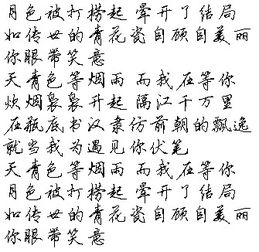 月色被打捞起 晕开了结局
如传世的青花瓷自顾自美丽
你眼带笑意
天青色等烟雨 而我在等你
炊烟袅袅升起 隔江千万里
在瓶底书汉隶仿前朝的飘逸
就当我为遇见你伏笔
天青色等烟雨 而我在等你
月色被打捞起 晕开了结局
如传世的青花瓷自顾自美丽
你眼带笑意